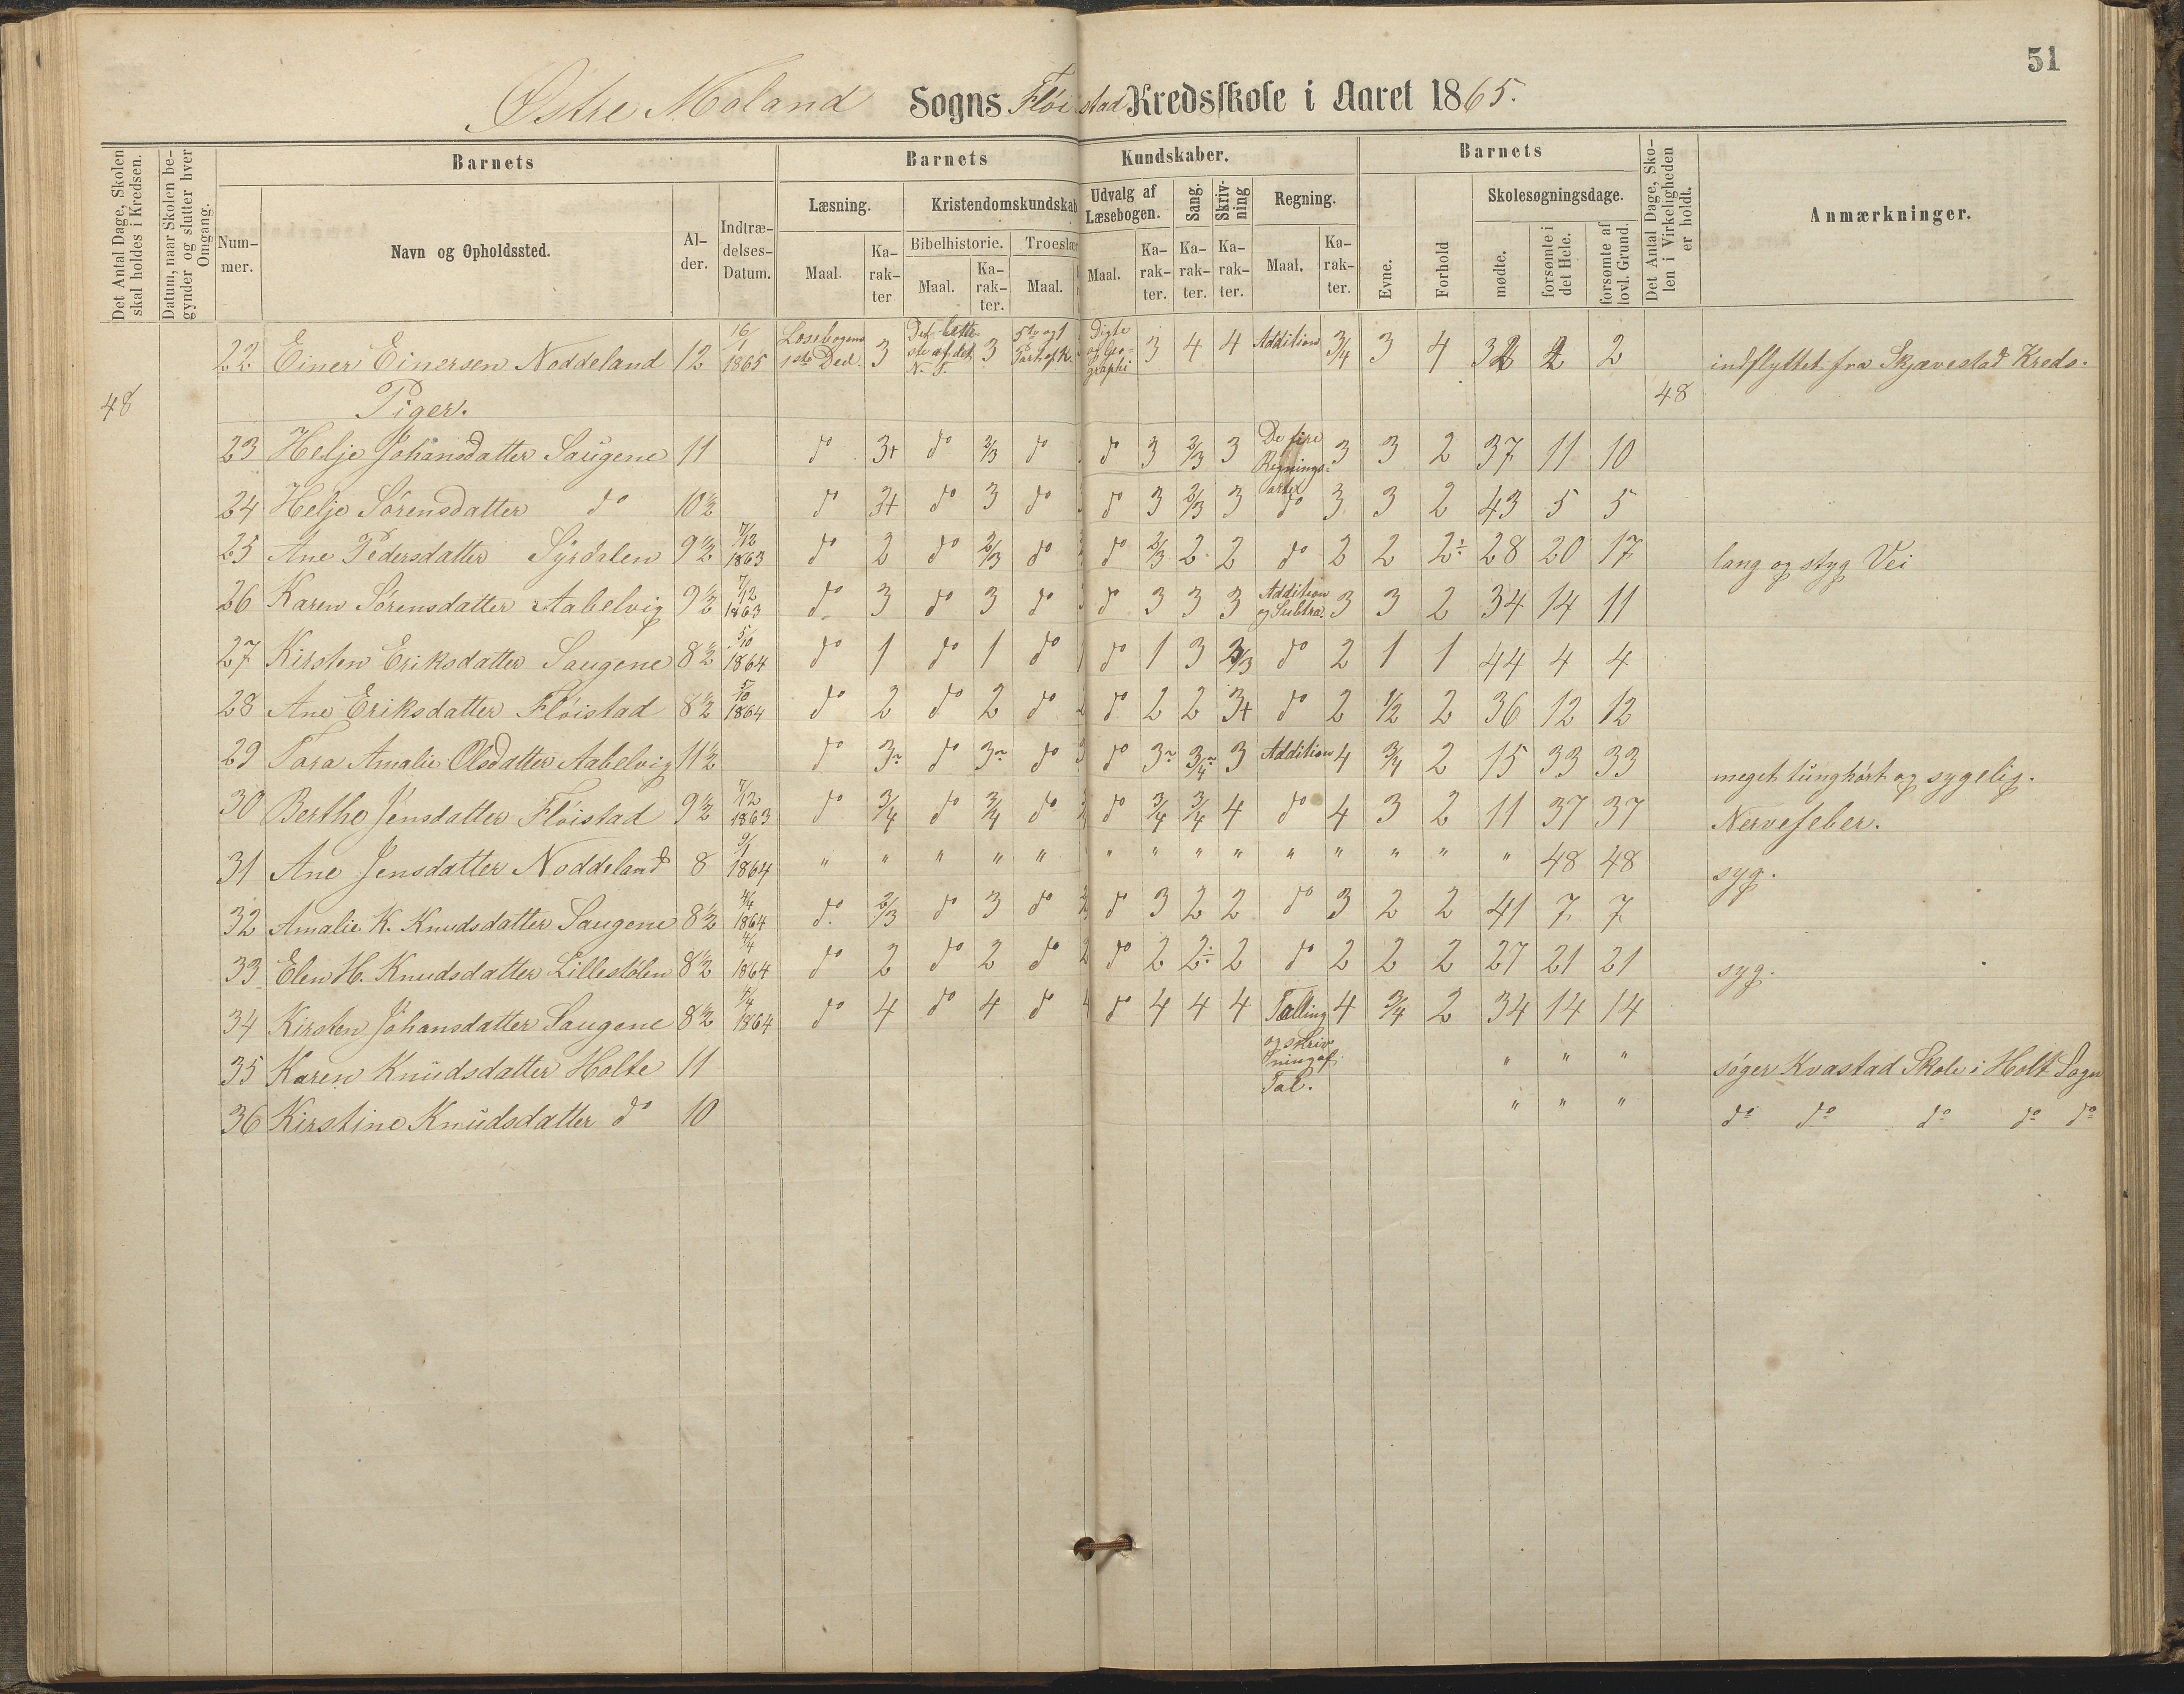 51
Østre Moland Sogns Fløistad Kredsskole i Aaret 1865.
Det Antal Dage, Skolen skal holdes i Kredsen.
Datum, naar Skolen begynder og slutter hver Omgang.
Barnets
Nummer.
Navn og Opholdssted.
Alder.
Indtrædelses-Datum.
Barnets Kundskaber.
Læsning.
Maal.
Karakter
Kristendomskundskab
Bibelhistorie.
Maal.
Karakter.
Troeslær
Maal.
Udvalg af Læsebogen.
Maal.
Karakter.
Sang.
Karakter.
Skrivning
Karakter.
Regning.
Maal.
Karakter.
Barnets
Evne.
Forhold
Skolesøgningsdage.
mødte.
forsømte i det Hele.
forsømte af lovl. Grund.
Det Antal Dage, Skolen i Virkeligheden er holdt.
Anmærkninger.
22 Einer Einersen Noddeland 12 16/1 1865 Læsebogens 1ste Del. 3 Det lette ste af det N. T. 3 5te og 1 Part af K. Digte og Geographi 3 4 4 Addition 3/4 3 4 32 2 2 indflyttet fra Skjævestad Kreds.
48 Piger. 48
23 Helje Johansdatter Saugene 11 do 3+ do 2/3 do do 3 2/3 3 De fire Regningsarter 3 3 2 37 11 10
24 Helje Sørensdatter do 10½ do 3+ do 3 do do 3 2/3 3 do 3 3 2 43 5 5
25 Ane Pedersdatter Syrdalen 9½ 7/12 1863 do 2 do 2/3 do do 2/3 2 2 do 2 2 2÷ 28 20 17 lang og styg Vei
26 Karen Sørensdatter Aabelvig 9½ 7/12 1863 do 3 do 3 do 3 do 3 3 3 Addition og Subtra. 3 3 2 34 14 11
27 Kirsten Eriksdatter Saugene 8½ 5/10 1864 do 1 do 1 do 1 do 1 3 2/3 do 2 1 1 44 4 4
28 Ane Eriksdatter Fløistad 8½ 5/10 1864 do 2 do 2 do 2 do 2 2 3+ do 2 1/2 2 36 12 12
29 Tara Amalie Olsdatter Aabelvig 11½ do 3 do 3 do 3 do 3 3/4 3 Addition 4 3/4 2 15 33 33 meget tunghørt og sygelig.
30 Berthe Jensdatter Fløistad 9½ 7/12 1863 do 3/4 do 3/4 do do 3/4 3/4 4 do 4 3 2 11 37 37 Nervefeber.
31 Ane Jensdatter Noddeland 8 9/1 1864 " " " " " " " " " " " " " " 48 48 syg.
32 Amalie K. Knudsdatter Saugene 8½ 4/4 1864 do. 2/3 do 3 do do 3 2 2 do 3 2 2 41 7 7
33 Elen H. Knudsdatter Lillestølen 8½ 4/4 1864 do 2 do 2 do 2 do 2 2÷ 2 do 2 2 2 27 21 21 syg.
34 Kirsten Johansdatter Saugene 8½ 4/4 1864 do 4 do 4 do 4 do 4 4 4 Tælling og Skrivning af Tal. 4 3/4 2 34 14 14
35 Karen Knudsdatter Holte 11 " " " søger Kvastad Skole i Holt Sogn
36 Kirstine Knudsdatter do 10 " " " do do do do do